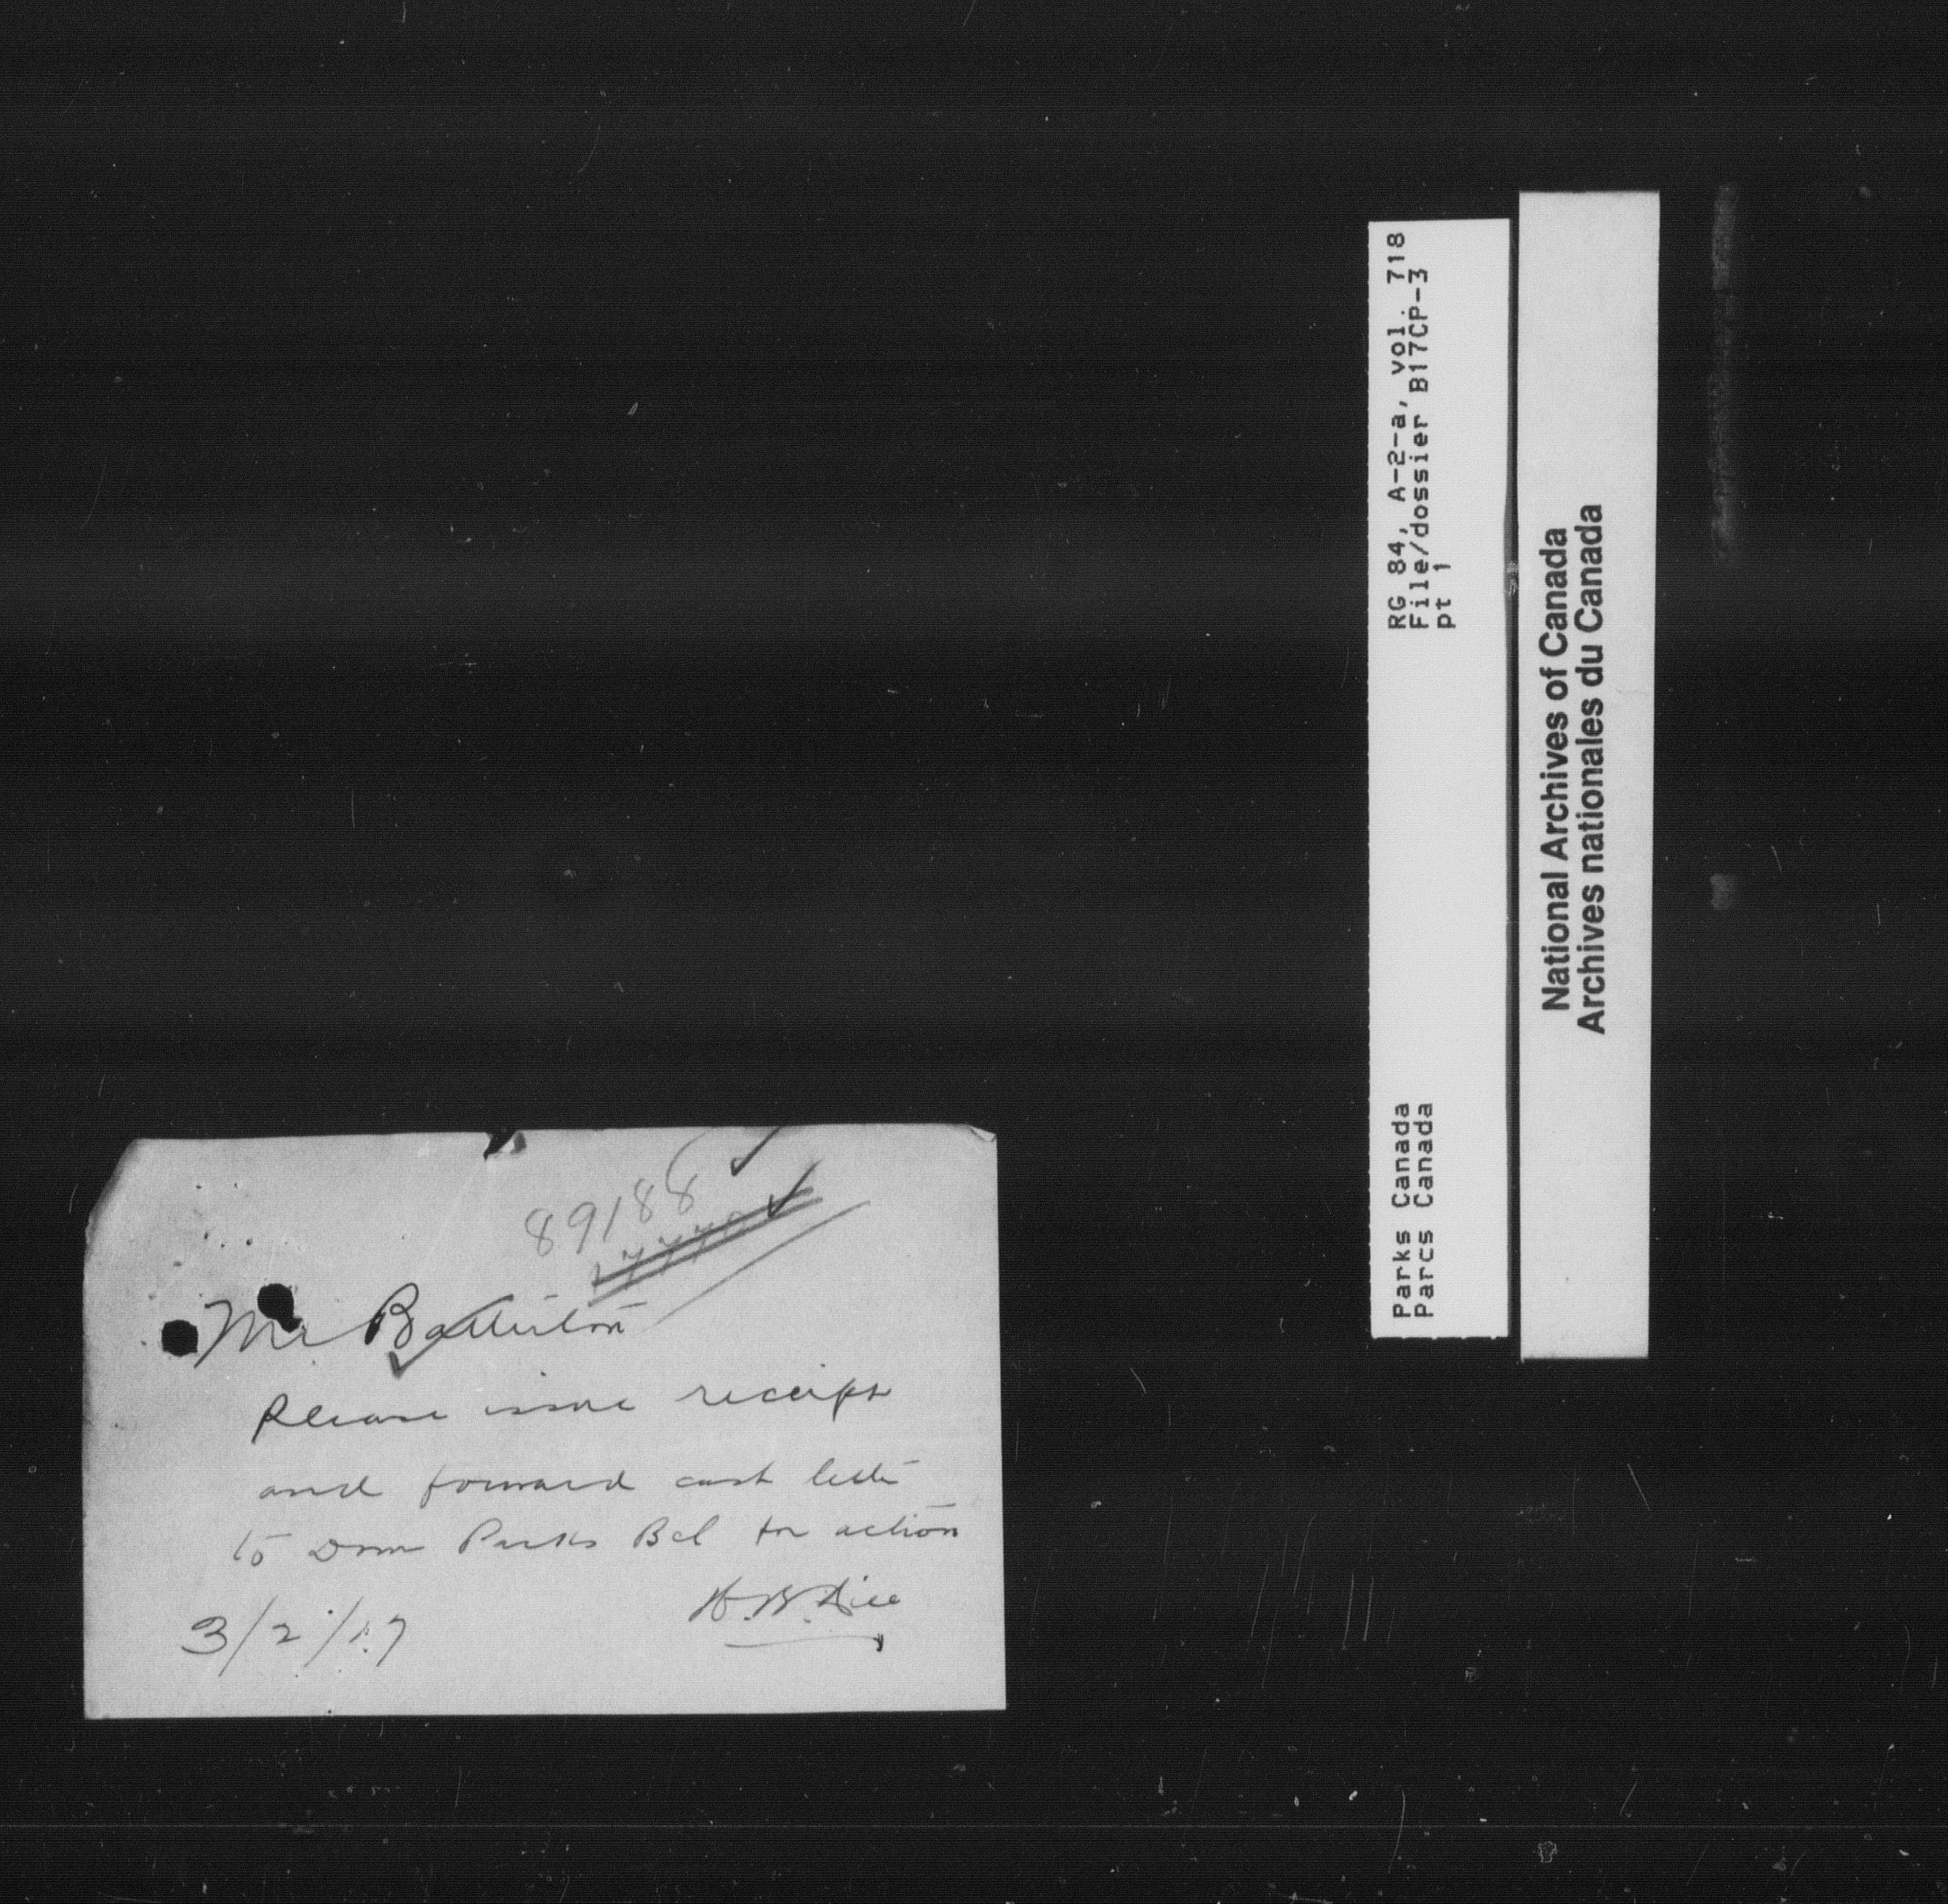 89188
Mr
Please issue receipt
and forward cash letter
to Dom Parks Bch for action
3/2/17
RG 84, A-2-a, vol. 718
File/dossier B17CP-3
pt 1
Parks Canada
Parcs Canada
National Archives of Canada
Archives nationales du Canada